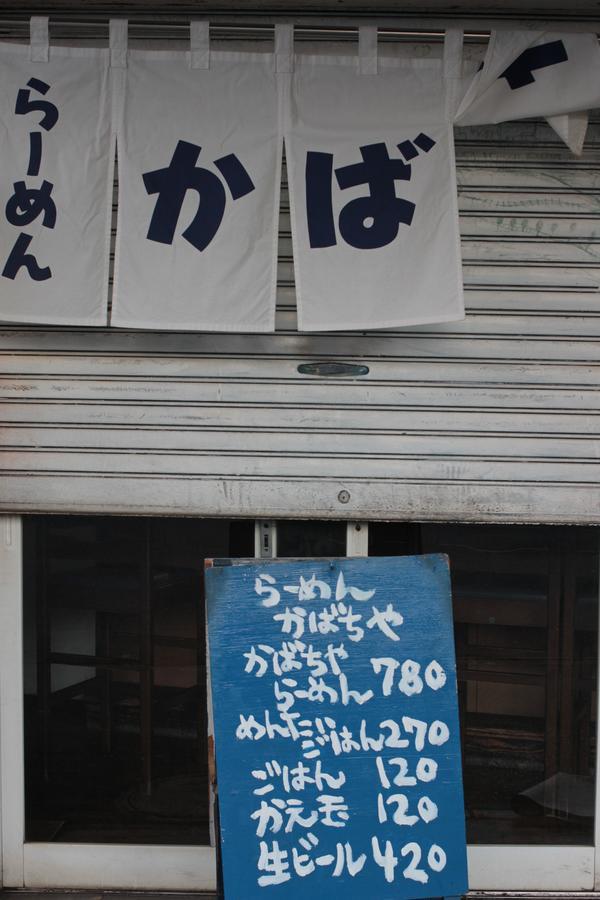 らーめん
か
ば
らーめん
かばちや
かばちや
らーめん 780
めんたい
ごはん 270
ごはん 120
かえ玉 120
生ビール 420